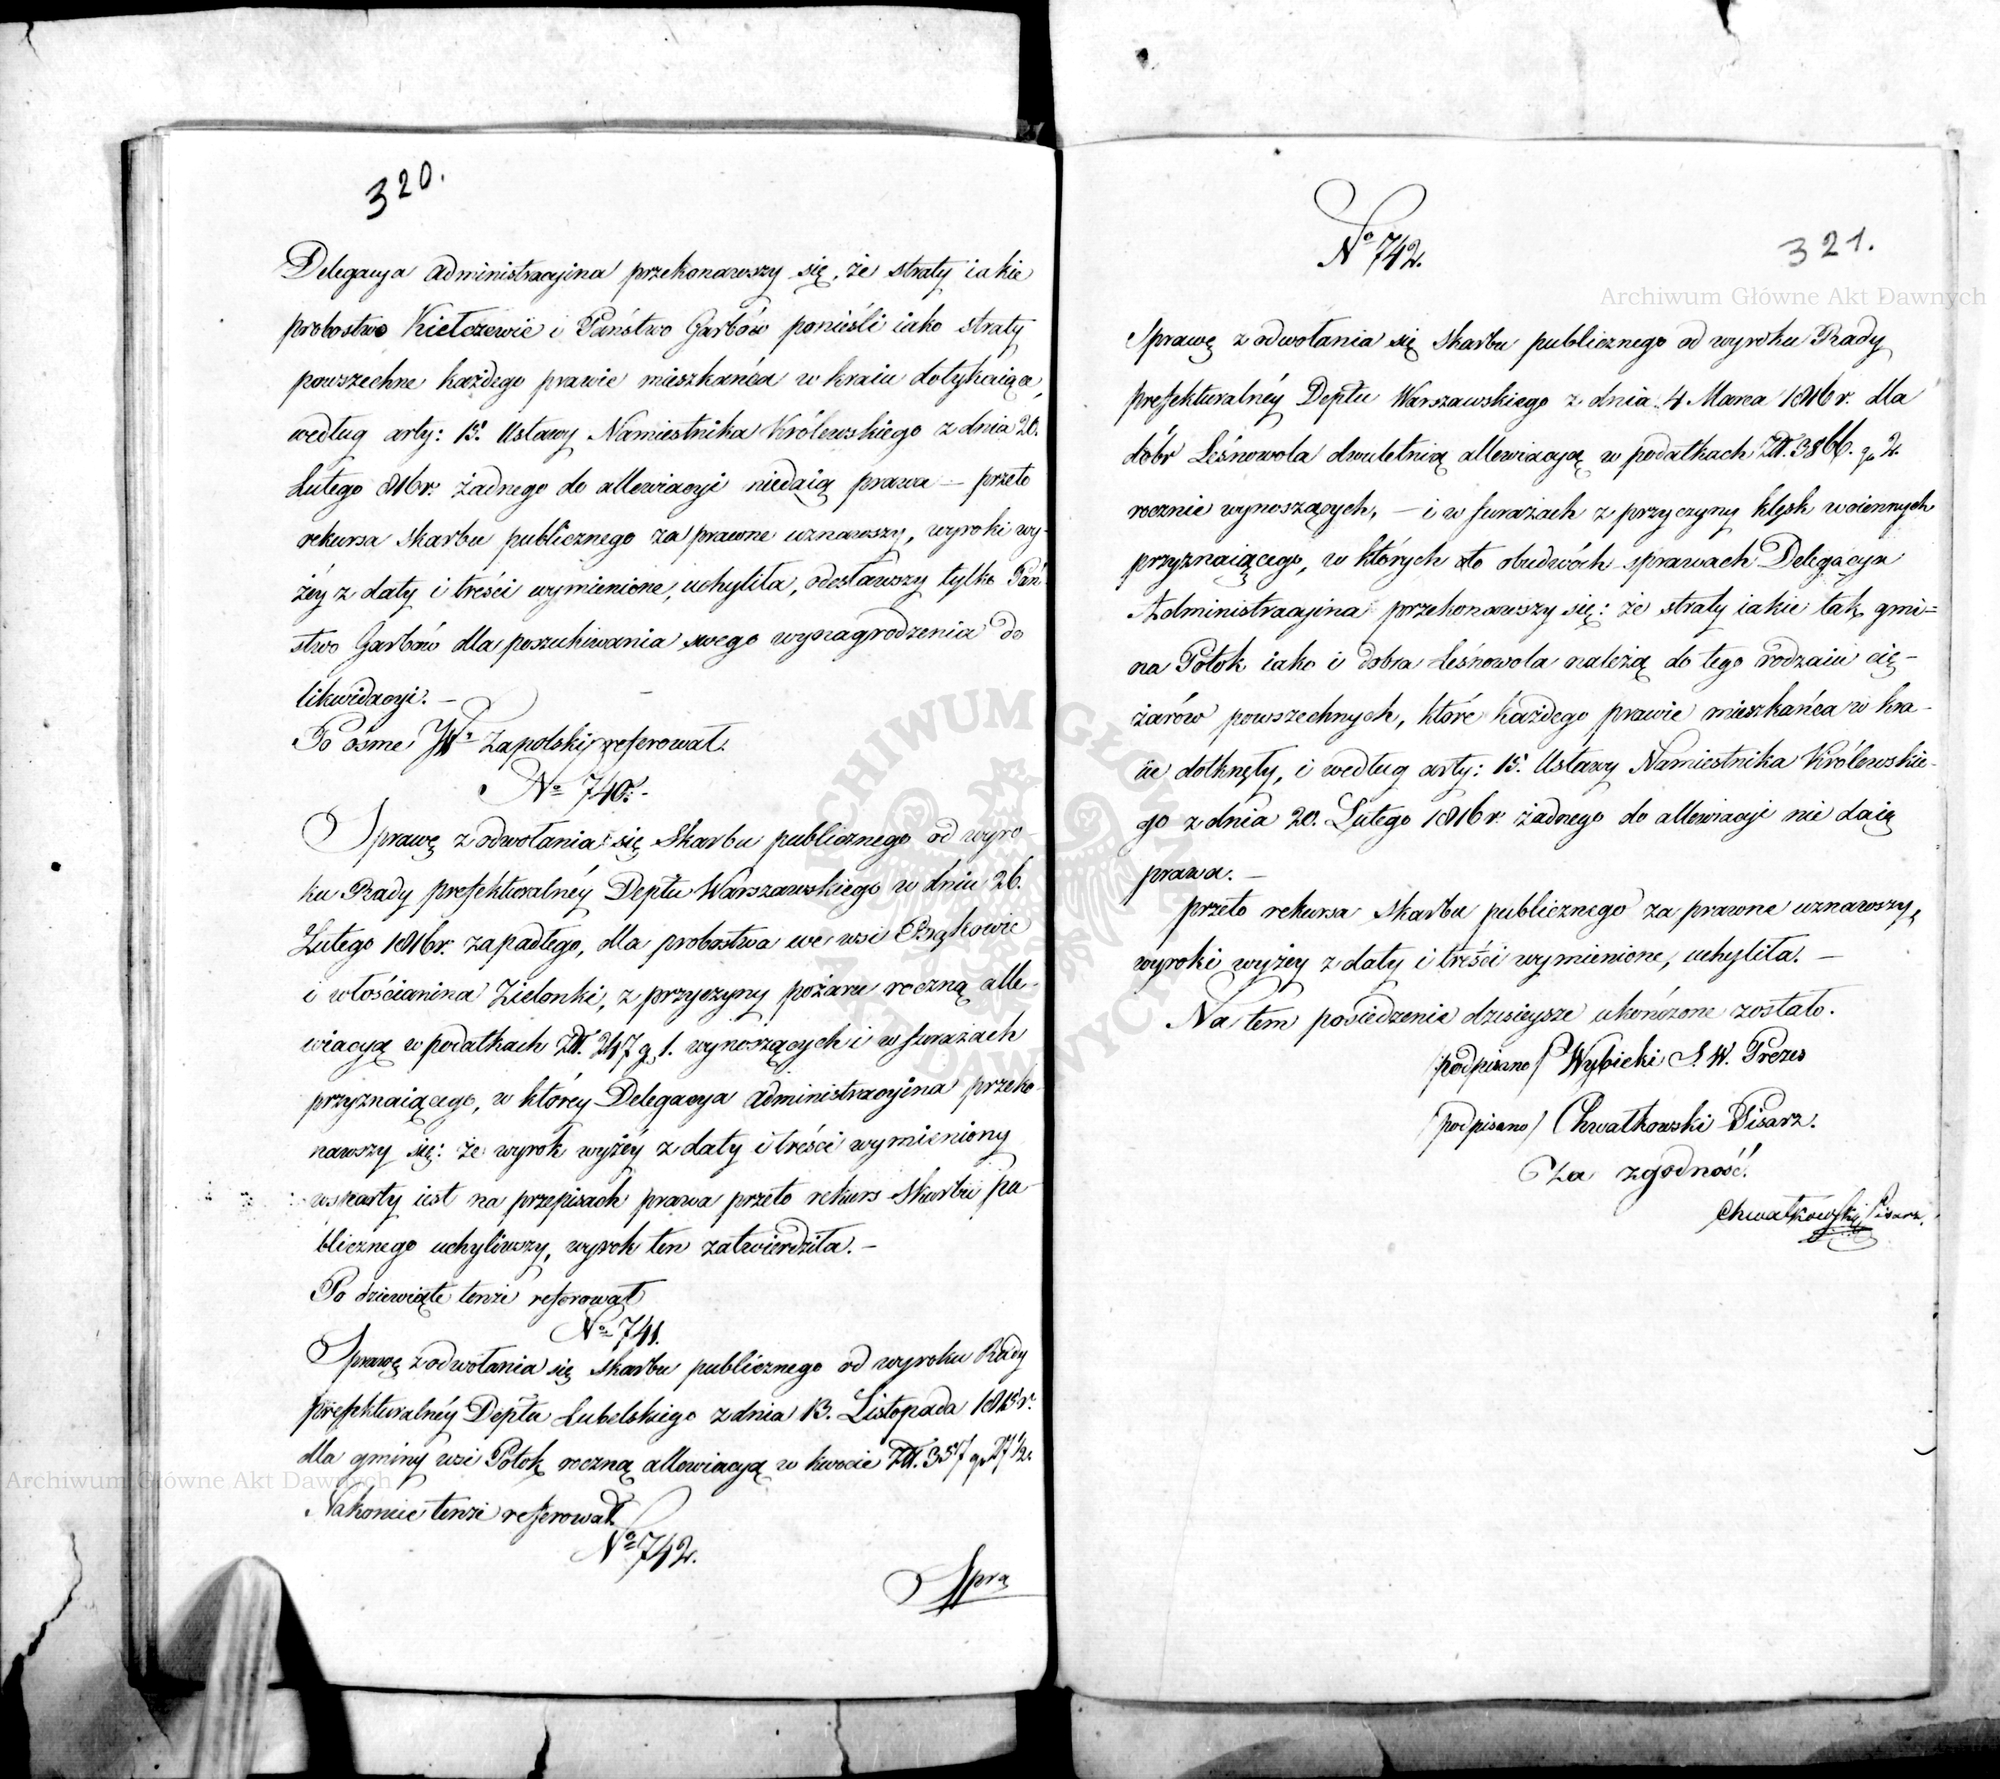 320.
Delegacya Administracyina przekonawszy się, że straty iakie
probostwo Kiełczewie i Państwo Garbów ponieśli iako straty
powszechne każdego prawie mieszkańca w kraiu dotykaiące,
według arty: 15. Ustawy Namiestnika Królewskiego z dnia 20.
Lutego 1816 r. żadnego do allewiacyi niedaią prawa — przeto
rekursa Skarbu publicznego za prawne uznawszy, wyroki wy-
żéy z daty i treści wymienione, uchyliła, odesławszy tylko Pań-
stwo Garbów dla poszukiwania swego wynagrodzenia do
likwidacyi. —
Po ósme JW. Zapolski referował.
No 740. -
Sprawę z odwołania się Skarbu publicznego od wyro-
ku Rady prefekturalnéy Deptu Warszawskiego w dniu 26.
Lutego 1816 r. zapadłego, dla probostwa we wsi
i włościanina Zielonki, z przyczyny pożaru roczną alle-
wiacyą w podatkach Zł. 247 g. 1. wynoszących i w furażach
przyznaiącego, w któréy Delegacya Administracyina przeko-
nawszy się: że wyrok wyżéy z daty i treści wymieniony
wsparty iest na przepisach prawa przeto rekurs Skarbu pu-
blicznego uchyliwszy, wyrok ten zatwierdziła. —
Po dziewiąte tenże referował
No 741.
Sprawę z odwołania się Skarbu publicznego od wyroku Rady
prefekturalnéy Deptu Lubelskiego z dnia 13. Listopada 1815 r.
dla gminy wsi Potok roczną allewiacyą w kwocie Zł. 357 gr 27 1/2
Nakoniec tenże referował.
No 742.
Spra
No 742.
321.
Archiwum Główne Akt Dawnych
Sprawę z odwołania się Skarbu publicznego od wyroku Rady
prefekturalnéy Deptu Warszawskiego z dnia 4 Marca 1816 r. dla
dóbr Leśnowola dwuletnią allewiacyą w podatkach Zł. 3866. gr 2.
rocznie wynoszących, — i w furażach z przyczyny klęsk woiennych
przyznaiącego, w których to obudwóch sprawach Delegacya
Administracyina przekonawszy się: że straty iakie tak gmi=
na Potok iako i dobra Leśnowola należą do tego rodzaiu cię-
żarów powszechnych, które każdego prawie mieszkańca w kra-
iu dotknęły, i według arty: 15. Ustawy Namiestnika Królewskie-
go z dnia 20. Lutego 1816 r. żadnego do allewiacyi nie daią
prawa. —
przeto rekursa Skarbu publicznego za prawne uznawszy,
wyroki wyżéy z daty i treści wymienione, uchyliła. —
Na tém posiedzenie dzisieysze ukończone zostało.
/podpisano/ Wybicki S. W. Prezes
/podpisano/ Chwatkowski Pisarz.
Za zgodność.
Chwatkowski Pisarz.
Archiwum Główne Akt Dawnych
ARCHIWUM GŁÓWNE
AKT DAWNYCH